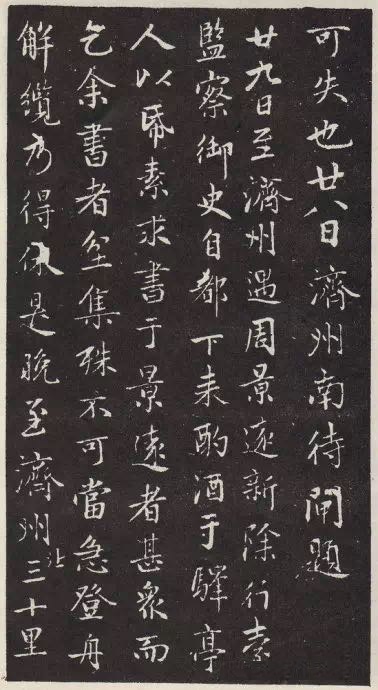 可失也廿八日濟州南待閘題
廿九日至濟州遇周景遠新除行臺
監察御史自都下来酌酒于驛亭
人以帋素求書于景遠者甚衆而
乞余書者坌集殊不可當急登舟
解纜乃得休是晚至濟州北三十里